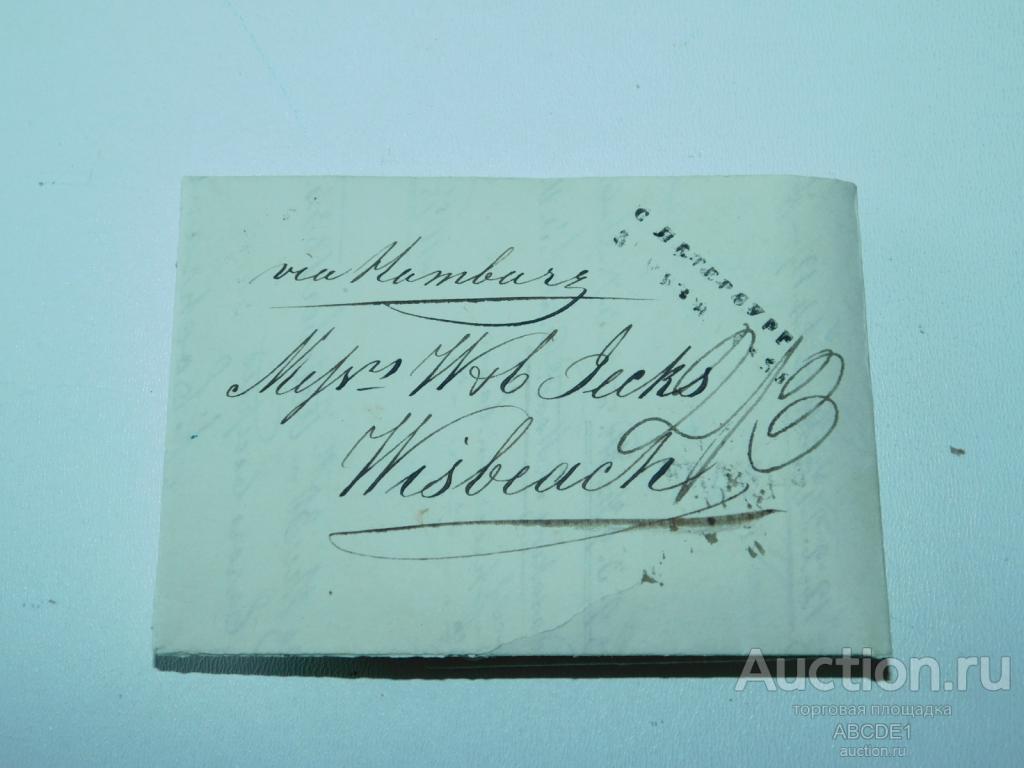 via Hamburg
С ПЕТЕРБУРГ
Messrs W & C Jecks
Wisbeach
Auction.ru
торговая площадка
ABCDE1
auction.ru